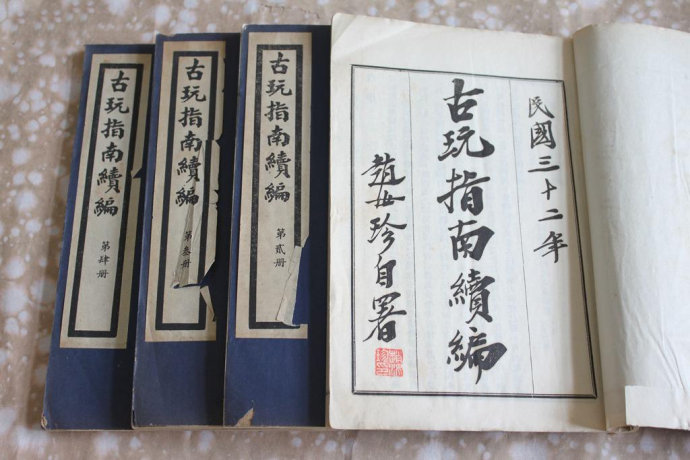 民國三十二年
古玩指南續編
趙汝珍自署
古玩指南續編
第貳册
古玩指南續編
第叁册
古玩指南續編
第肆册